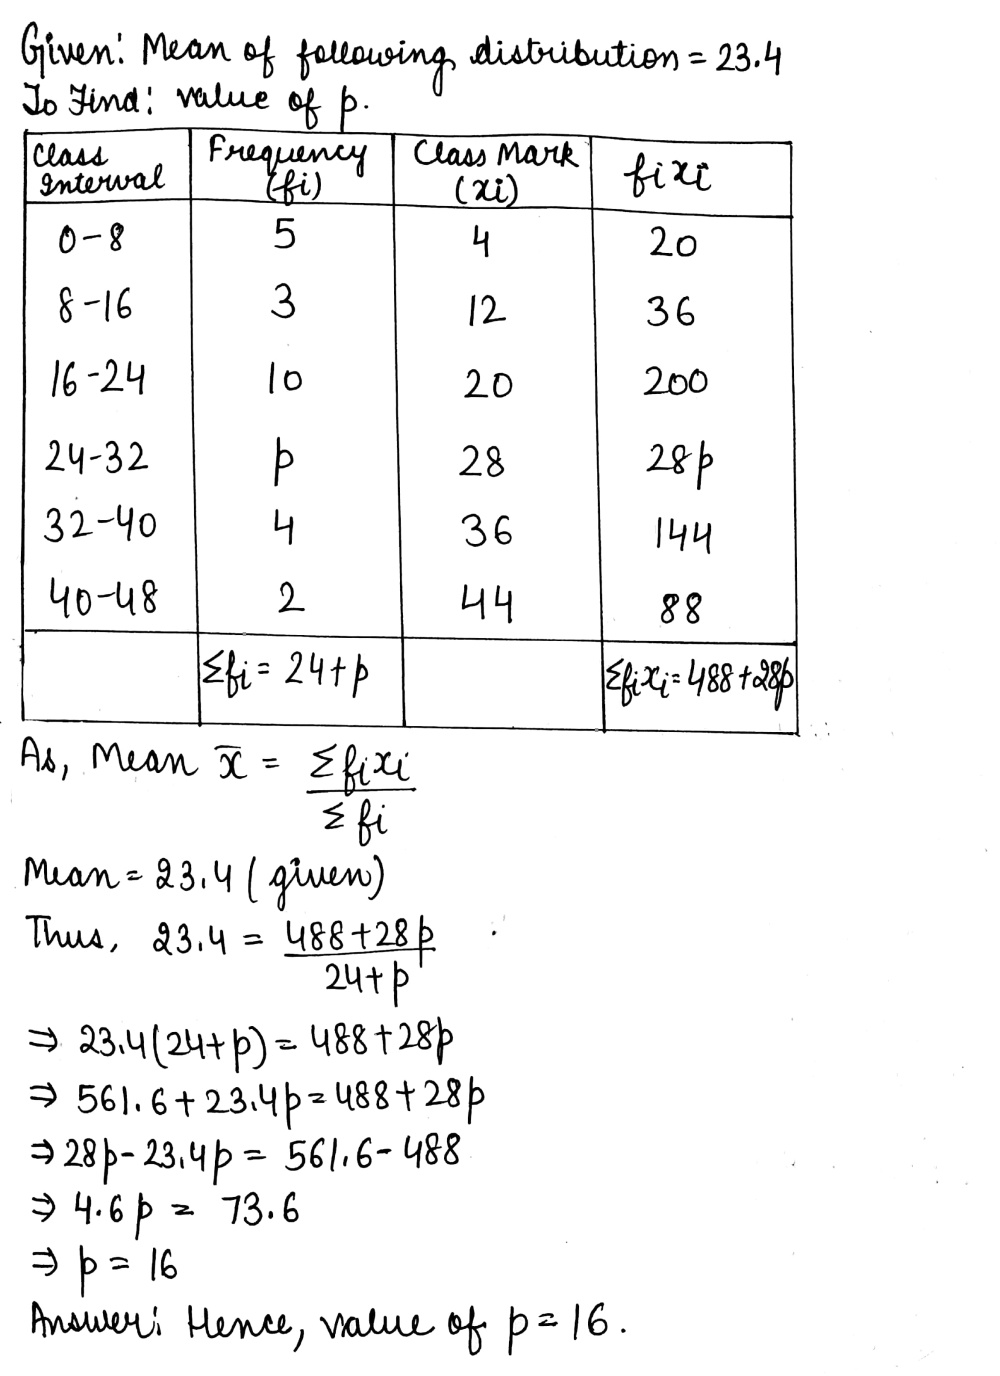 Given: Mean of following distribution = 23.4
To Find: value of p.
Class Interval | Frequency (fi) | Class Mark (xi) | fixi
0-8 | 5 | 4 | 20
8-16 | 3 | 12 | 36
16-24 | 10 | 20 | 200
24-32 | p | 28 | 28p
32-40 | 4 | 36 | 144
40-48 | 2 | 44 | 88
Σfi = 24+p | Σfixi = 488+28p
As, Mean x̄ = Σfixi / Σfi
Mean = 23.4 (given)
Thus, 23.4 = 488+28p / 24+p
⇒ 23.4(24+p) = 488+28p
⇒ 561.6+23.4p = 488+28p
⇒ 28p-23.4p = 561.6-488
⇒ 4.6p = 73.6
⇒ p = 16
Answer: Hence, value of p = 16.